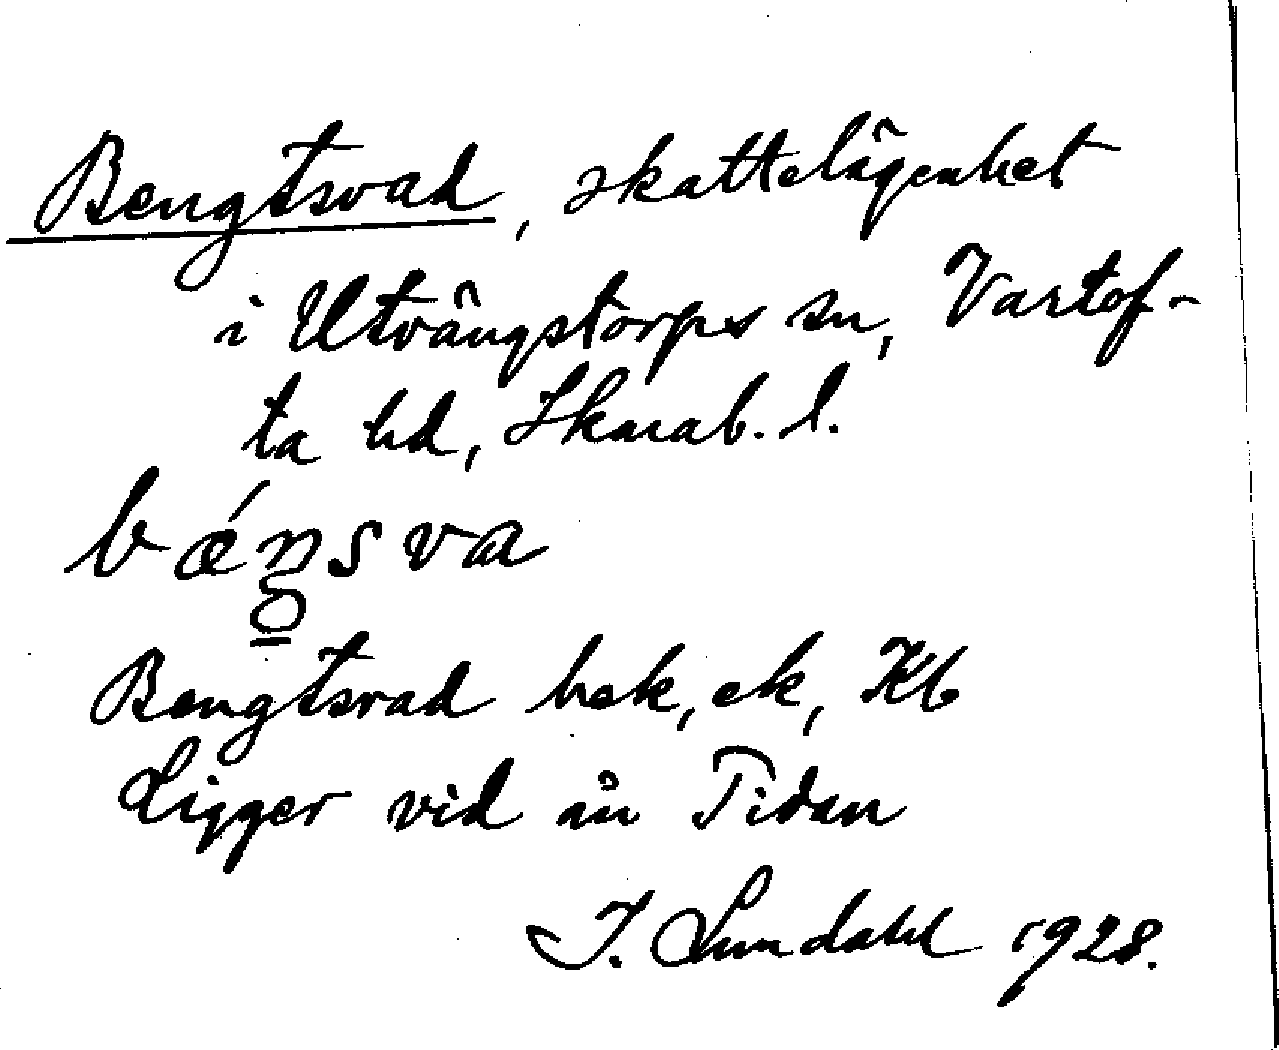 Bengtsvad, skattelägenhet
i Utvängstorps sn, Vartof-
ta hd, Skarab. l.
bǽnsva
Bengtsvad hek, ek, Kb
Ligger vid ån Tidan
I. Lundahl 1928.